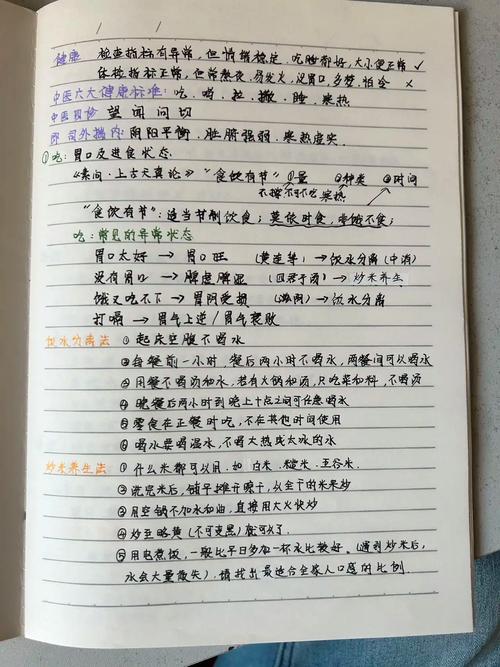 健康 检查指标有异常,但情绪稳定、吃睡都好,大小便正常 ✓
体检指标正常,但常熬夜、易发火、没胃口、多梦、怕冷 ×
中医六大健康标准:吃、喝、拉、撒、睡、寒热
中医四诊 望 闻 问 切
即 司外揣内:阴阳平衡、脏腑强弱、寒热虚实
①吃:胃口及进食状态
《素问·上古天真论》 "食饮有节" ①量 ②种类 ③时间
不撑不可不吃 寒热
"食饮有节":适当节制饮食;莫依时食,幸饿不食;
吃:常见的异常状态
胃口太好 → 胃口旺 (黄连等) → 饮水分离 (中消)
没有胃口 → 脾虚脾湿 (四君子汤) → 炒米养生
饿又吃不下 → 胃阴受损 → 饮水分离
打嗝 → 胃气上逆/胃气衰败
饮水分离法 ①起床空腹不喝水
②每餐前一小时,餐后两小时不喝水,两餐间可以喝水
③用餐不喝汤和水,若有火锅和汤,只吃菜和料,不喝汤
④晚餐后两小时到晚上十点之间可任意喝水
⑤零食在正餐时吃,不在其他时间使用
⑥喝水要喝温水,不喝大热或太冰的水
炒米养生法 ①什么米都可以用.如 白米、糙米、五谷米.
②洗完米后,铺平摊开晾干,以全干的米来炒
③用空锅不加水和油,直接用大火快炒
④炒至略黄(不可变黑)就可以了.
⑤用电煮饭,一般比平日多加一杯水比较好.(遇到炒米后,
水会大量散失),请找出最适合全家人口感的比例.